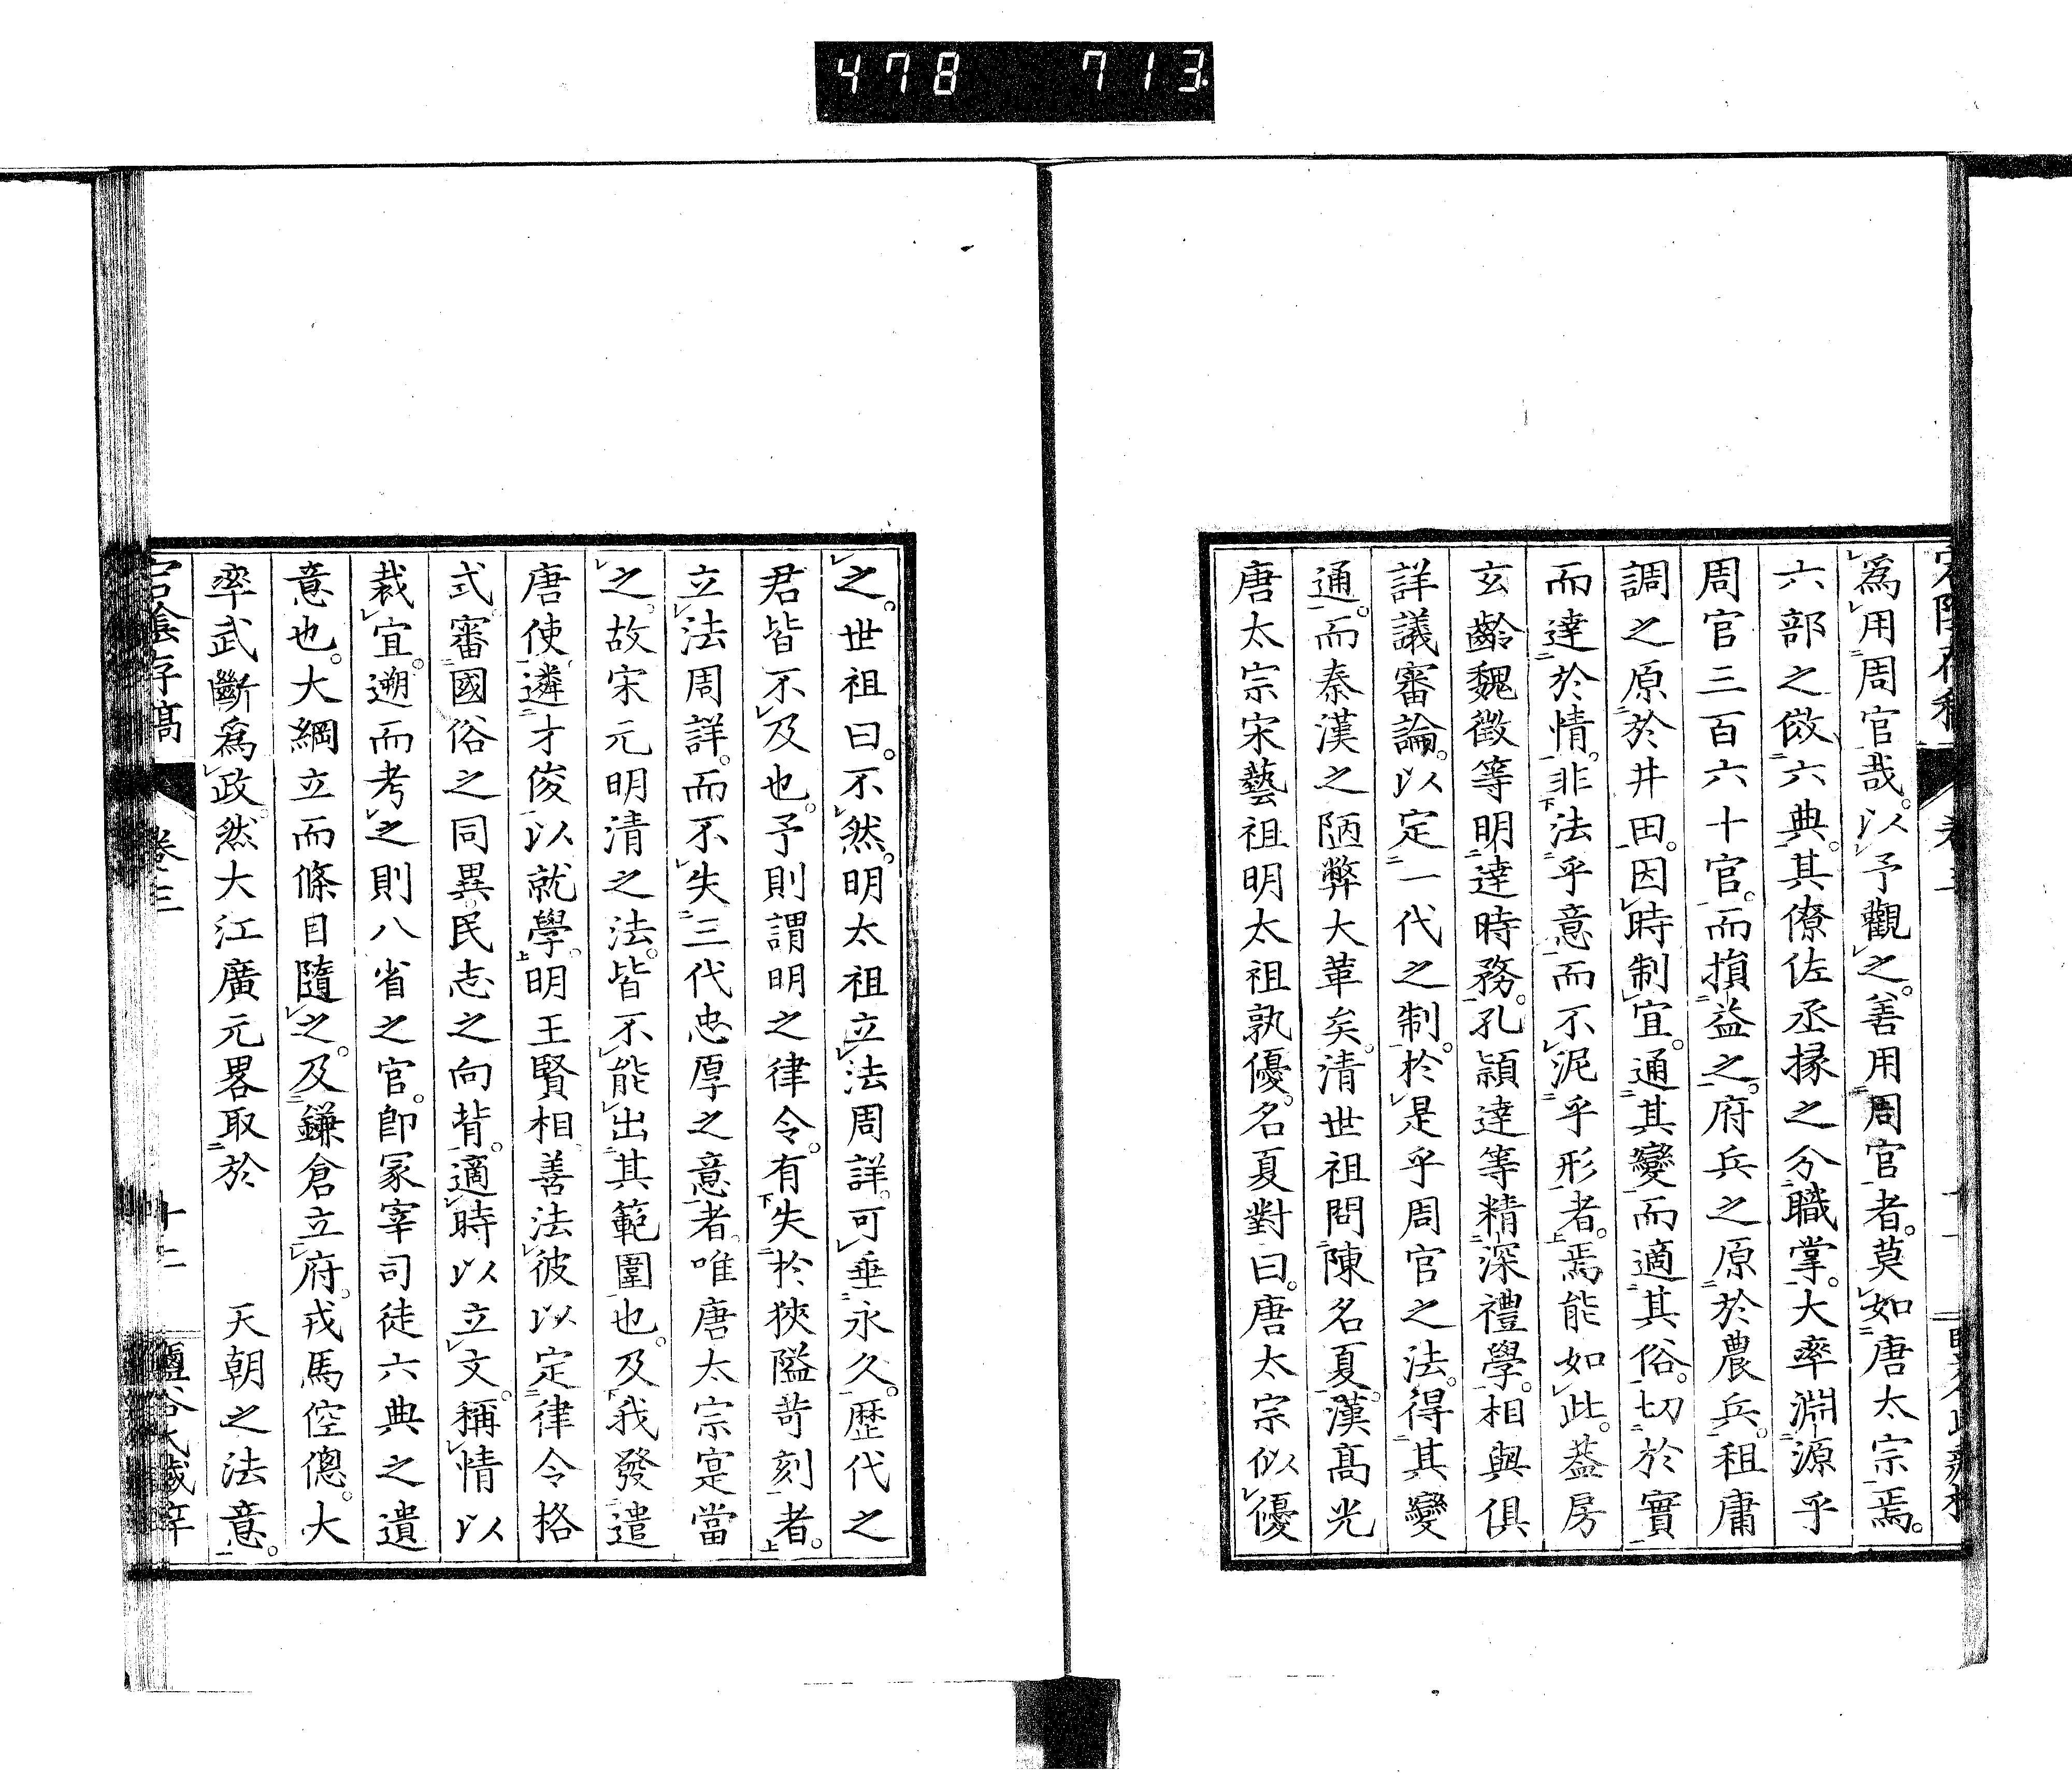 478 713
爲用周官哉。以予觀之。善用周官者。莫如唐太宗焉。
六部之倣六典。其僚佐丞掾之分職掌。大率淵源乎
周官三百六十官。而損益之。府兵之原於農兵。租庸
調之原於井田。因時制宜。通其變而適其俗。切於實
而達於情。非法乎意而不泥乎形者。焉能如此。葢房
玄齡魏徵等明達時務。孔穎達等精深禮學。相與俱
詳議審論。以定一代之制。於是乎周官之法。得其變
通。而秦漢之陋弊大革矣。清世祖問陳名夏。漢高光
唐太宗宋藝祖明太祖孰優。名夏對曰。唐太宗似優
之。世祖曰。不然。明太祖立法周詳。可垂永久。歷代之
君皆不及也。予則謂明之律令。有失於狹隘苛刻者。
立法周詳。而不失三代忠厚之意者。唯唐太宗寔當
之。故宋元明清之法。皆不能出其範圍也。及我發遣
唐使遴才俊以就學。明王賢相。善法彼以定律令格
式。審國俗之同異。民志之向背。適時以立文。稱情以
裁宜。遡而考之則八省之官。卽冢宰司徒六典之遺
意也。大綱立而條目隨之。及鎌倉立府。戎馬倥傯。大
率武斷爲政。然大江廣元畧取於 天朝之法意。
宕陰存稿 卷三 十二